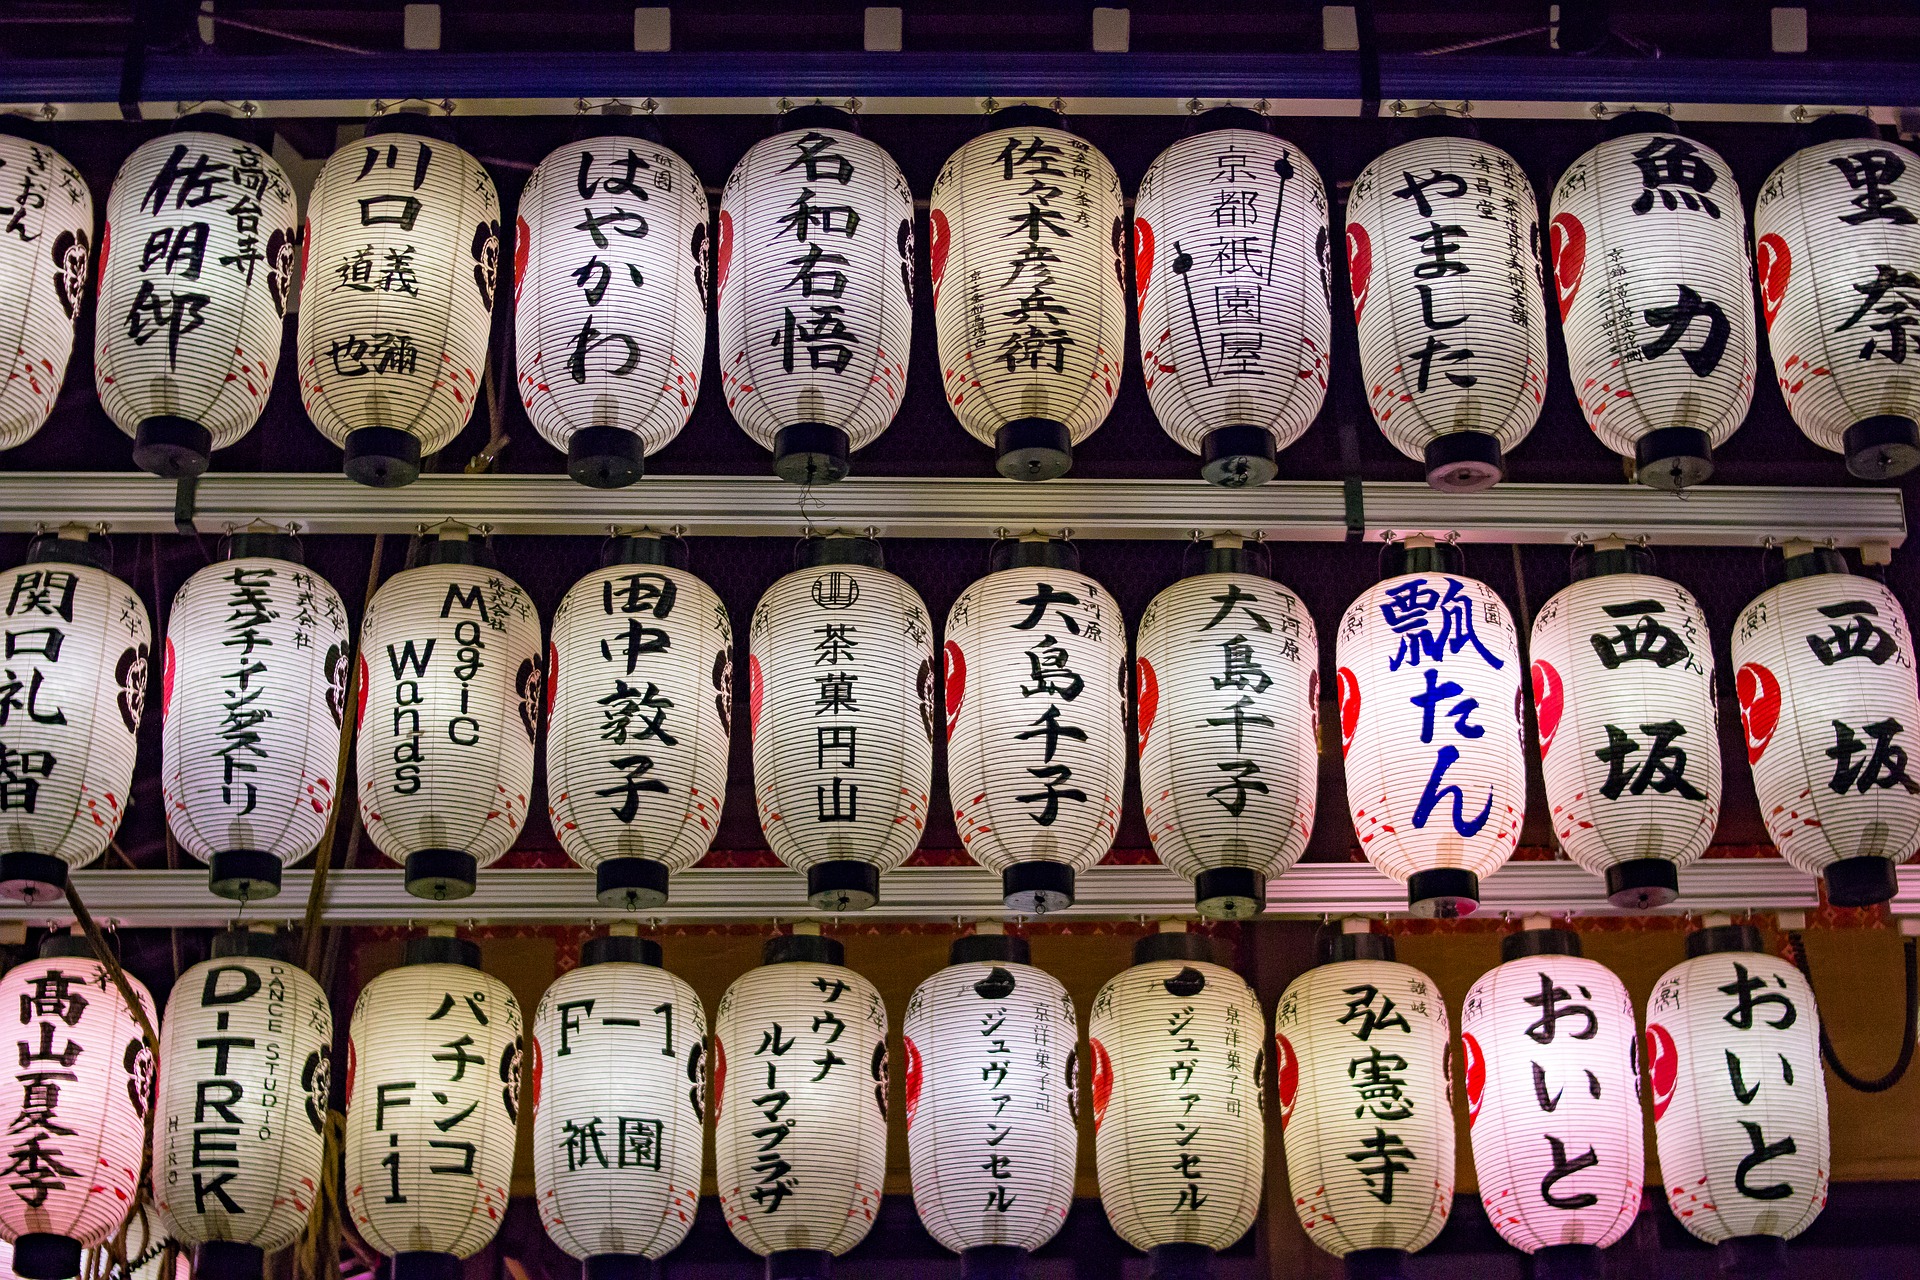 ぎおん
高台寺
佐明邸
川口
義彌
道也
祇園
はやかわ
名和右悟
佐々木彦兵衛
京都祇園屋
清昌堂
やました
魚力
里奈
関口礼智
株式会社
セキグチインダストリ
株式会社
Magic
Wands
田中敦子
茶菓円山
下河原
大島千子
下河原
大島千子
祇園
瓢たん
西坂
西坂
髙山夏季
DANCE STUDIO
DiTREK
HIRO
パチンコ
F-1
F-1
祇園
サウナ
ルーマプラザ
京洋菓子司
ジュヴァンセル
京洋菓子司
ジュヴァンセル
讃岐
弘憲寺
おいと
おいと